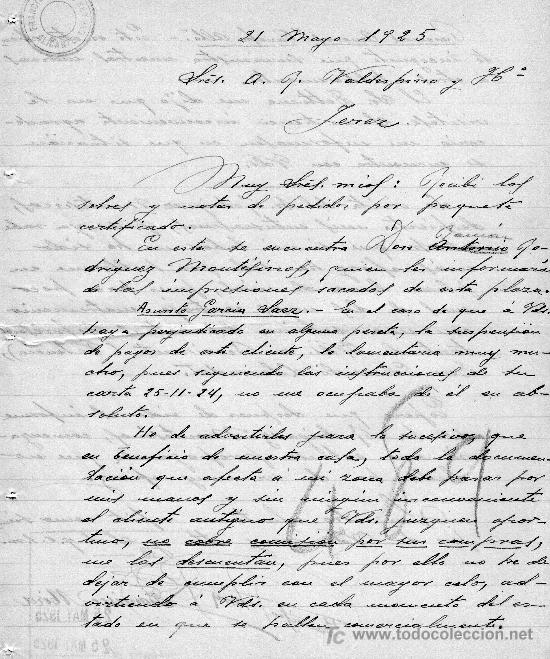 21 Mayo 1925
Srés. A. R. Valdespino y Hº
Jerez.
Muy Srés. mios: Recibí los
sobres y notas de pedidos por paquete
certificado.
Ramón
En esta se encuentra Don Antonio Ro-
dríguez Montesinos, quien les informará
de las impresiones sacadas de esta plaza.
Asunto García Saez.- En el caso de que á Vds.
haya perjudicado en alguna peseta, la suspensión
de pagos de este cliente, lo lamentaria muy mu-
cho, pues siguiendo las instrucciones de su
carta 25-11-24, no me ocupaba de él en ab-
soluto.
He de advertirles para lo sucesivo, que
en beneficio de nuestra casa, toda la documen-
tación que afecte á mi zona debe pasar por
mis manos y sin ningún inconveniente
el cliente antiguo que Vds. juzguen opor-
tuno, no cobre comisión por sus compras,
me las descuentan, pues por ello no he de
dejar de cumplir con el mayor celo, ad-
virtiendo á Vds. en cada momento del es-
tado en que se hallen comercialmente.
www.todocoleccion.net